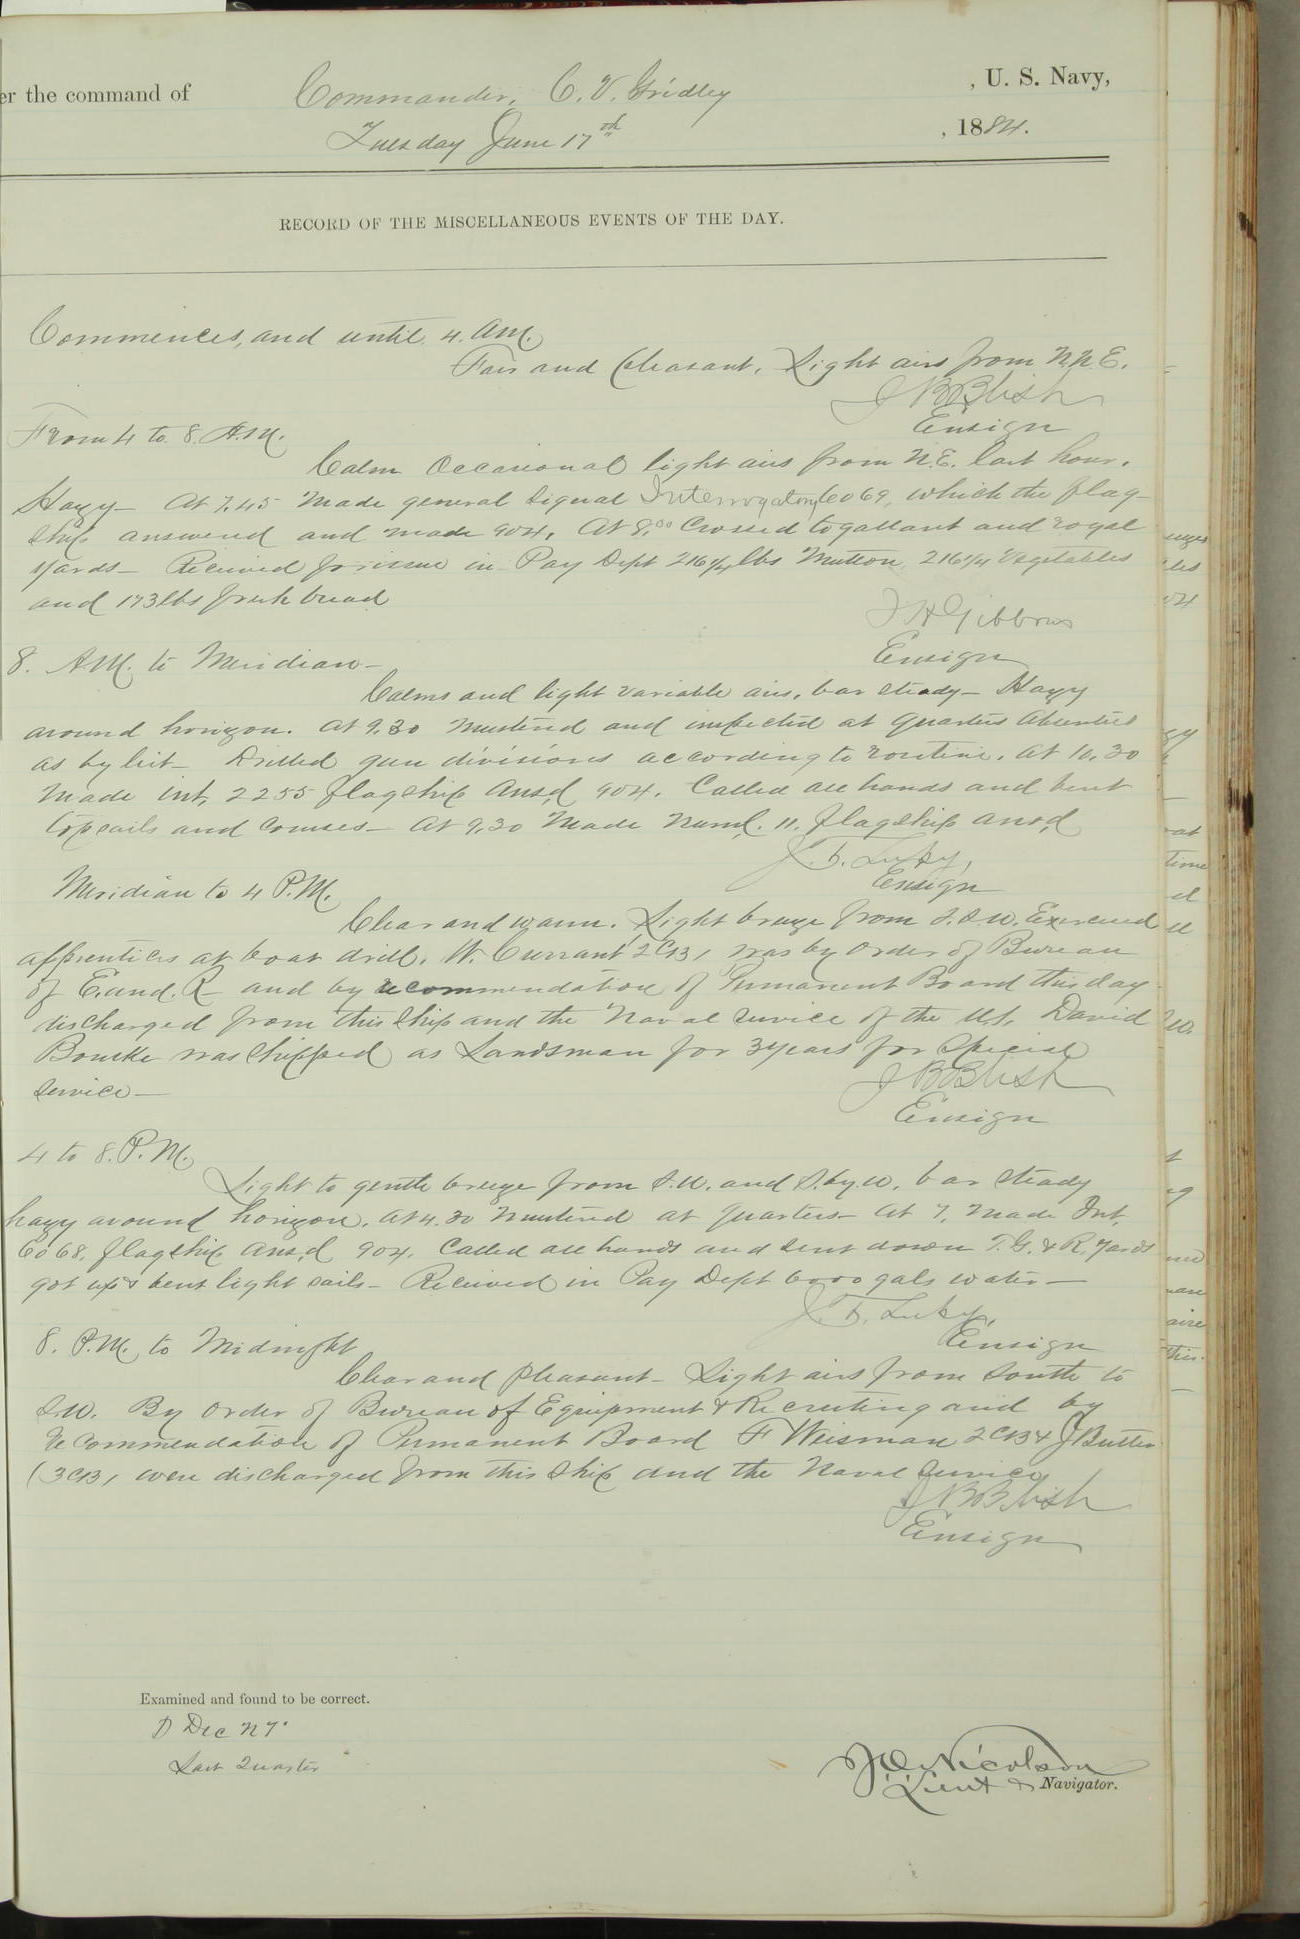 er the command of Commander, C. V. Gridley , U. S. Navy,
Tuesday June 17th , 1884.
RECORD OF THE MISCELLANEOUS EVENTS OF THE DAY.
Commences, and until 4. AM.
Fair and pleasant. Light airs from N.N.E.
J B Blish
Ensign
From 4 to 8 A.M.
Calm Occasional light airs from N.E. last hour.
Hazy— At 7.45 Made general signal Interrogatory 6069, which the flag-
ship answered and made 904. At 8.00 Crossed togallant and royal
yards— Received for issue in Pay Dept 216 1/4 lbs Mutton 216 1/4 Vegetables
and 173 lbs fresh bread
J H Gibbons
Ensign
8. AM. to Meridian—
Calms and light variable airs, bar steady— Hazy
around horizon. At 9.30 Mustered and inspected at quarters Absentees
as by list— Drilled gun divisions according to routine. At 10.30
Made int, 2255 flagship Ansd, 904. Called all hands and bent
topsails and courses— At 9.30 Made Numl. 11. flagship ansd,
Ensign
Meridian to 4 P.M.
Clear and warm. Light breeze from S.S.W. Exercised
apprentices at boat drill. W. Currant 2CB, was by order of Bureau
of E. and. R— and by recommendation of Permanent Board this day
discharged from this ship and the Naval service of the U.S. David
Bourke was shipped as Landsman for 3 years for Special
service—
J B Blish
Ensign
4 to 8. P. M.
Light to gentle breeze from S.W. and S.by.W. bar steady
hazy around horizon. At 4.30 Mustered at quarters— At 7, Made Int,
6068, flagship Ans,d 904. Called all hands and sent down T.G. & R. yards
got up & bent light sails— Received in Pay Dept 6000 gals water—
Ensign
8. P.M. to Midnight
Clear and pleasant— Light airs from South to
S.W. By order of Bureau of Equipment & Recruiting and by
recommendation of Permanent Board F Weisman 2CB & J Butter
(3CB, were discharged from this ship and the Naval Service
J B Blish
Ensign
Examined and found to be correct.
D Dec N 7°
Last Quarter
Nicolson
Lieut & Navigator.